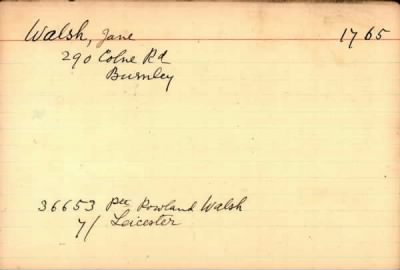 Walsh, Jane 1765
290 Colne Rd
Burnley
36653 Pte Rowland Walsh
7/ Leicester